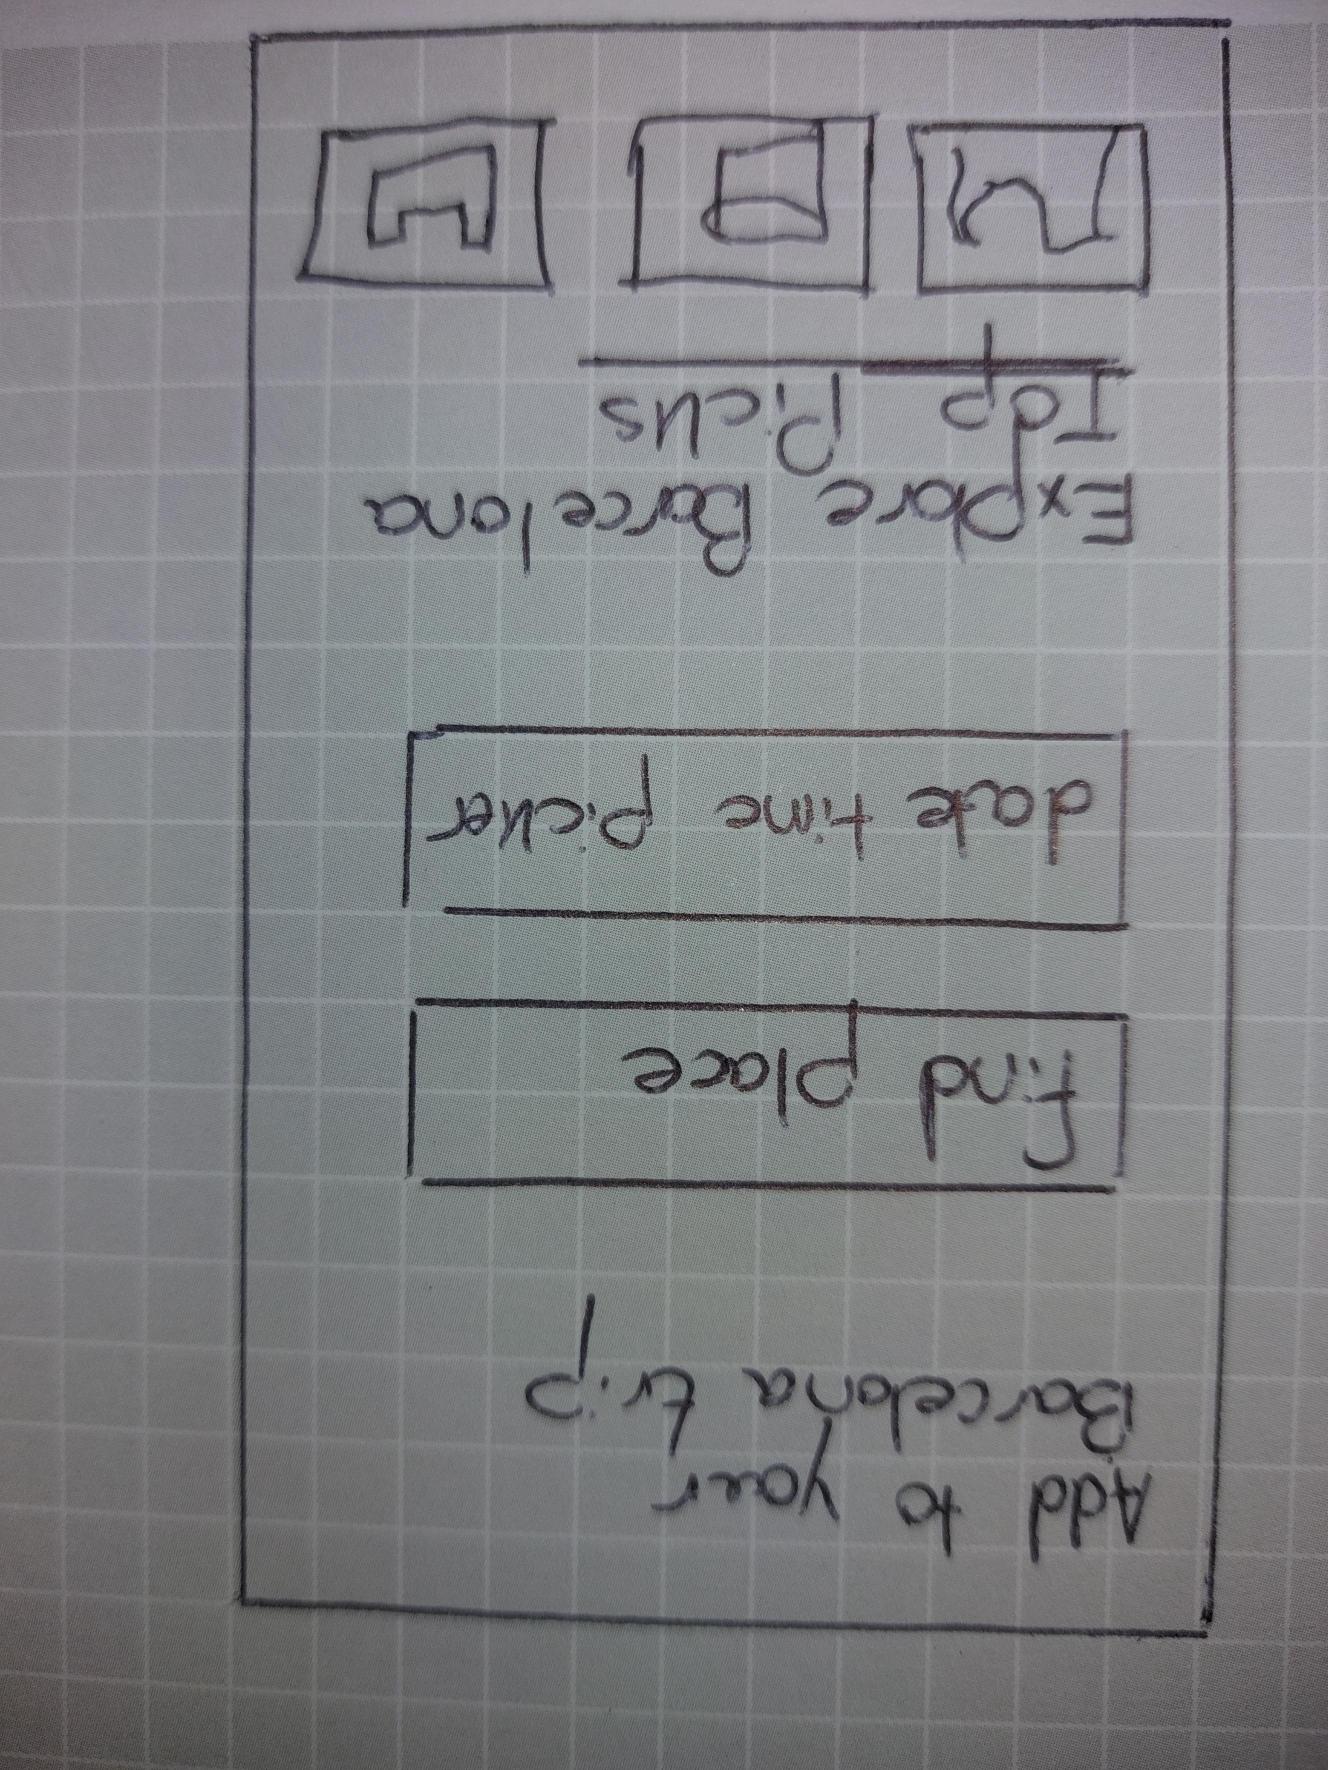 Add to your
Barcelona trip
find place
date time picker
Explore Barcelona
Top Picks